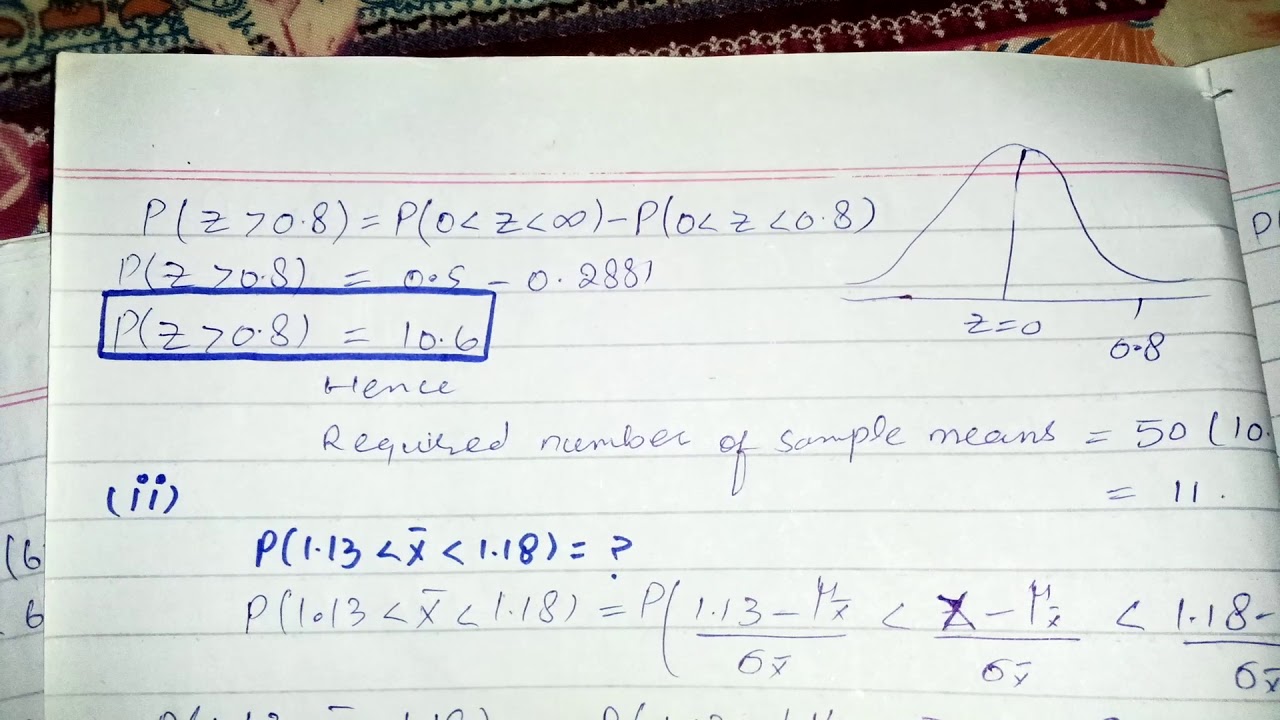 P(z>0.8) = P(0<z<∞) - P(0<z<0.8)
P(z>0.8) = 0.5 - 0.2881
P(z>0.8) = 10.6
z=0
0.8
Hence
Required number of sample means = 50 (10.
= 11.
(ii)
P(1.13 < x̄ < 1.18) = ?
P(1.13 < x̄ < 1.18) = P( 1.13 - μx̄ / σx̄ < x̄ - μx̄ / σx̄ < 1.18 - / σx̄
(6
6
P